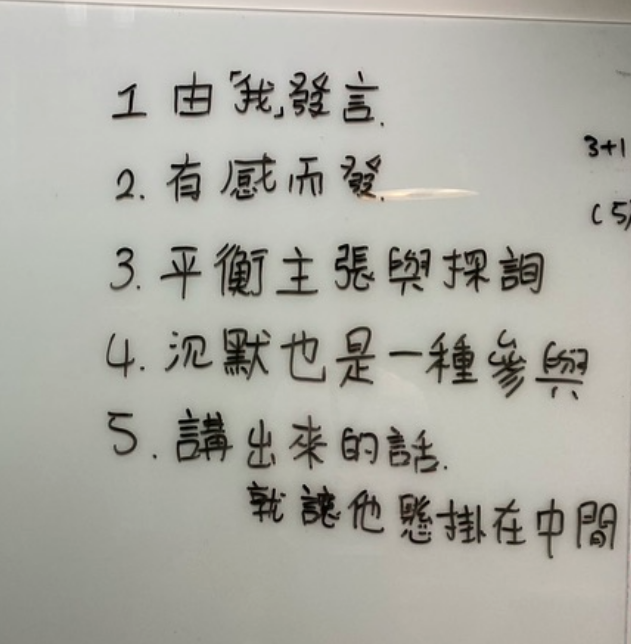 1 由「我」發言.
3+1
2. 有感而發.
(5)
3. 平衡主張與探詢
4. 沉默也是一種參與
5. 講出來的話.
就讓他懸掛在中間